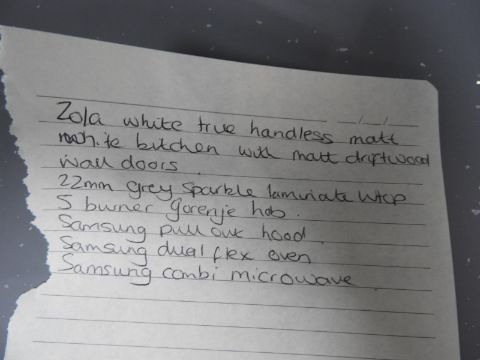 Zola white true handless matt
white kitchen with matt driftwood
wall doors.
22mm grey sparkle laminate wtop
5 burner gorenje hob.
Samsung pull out hood.
Samsung dual flex oven
Samsung combi microwave